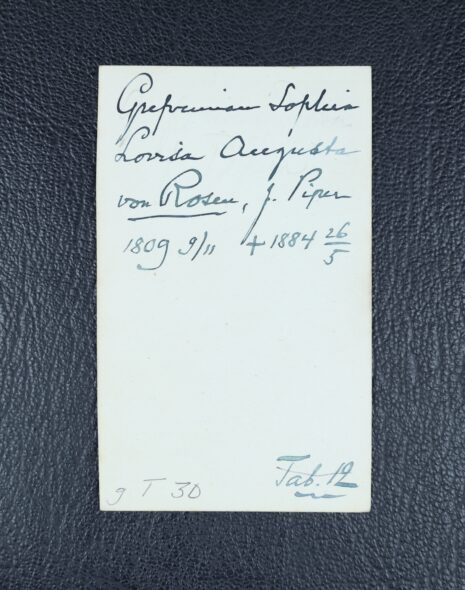 Grefvinnan Sophia
Lovisa Augusta
von Rosen, f. Piper
1809 9/11 + 1884 26/5
Tab. 12
9 T 30